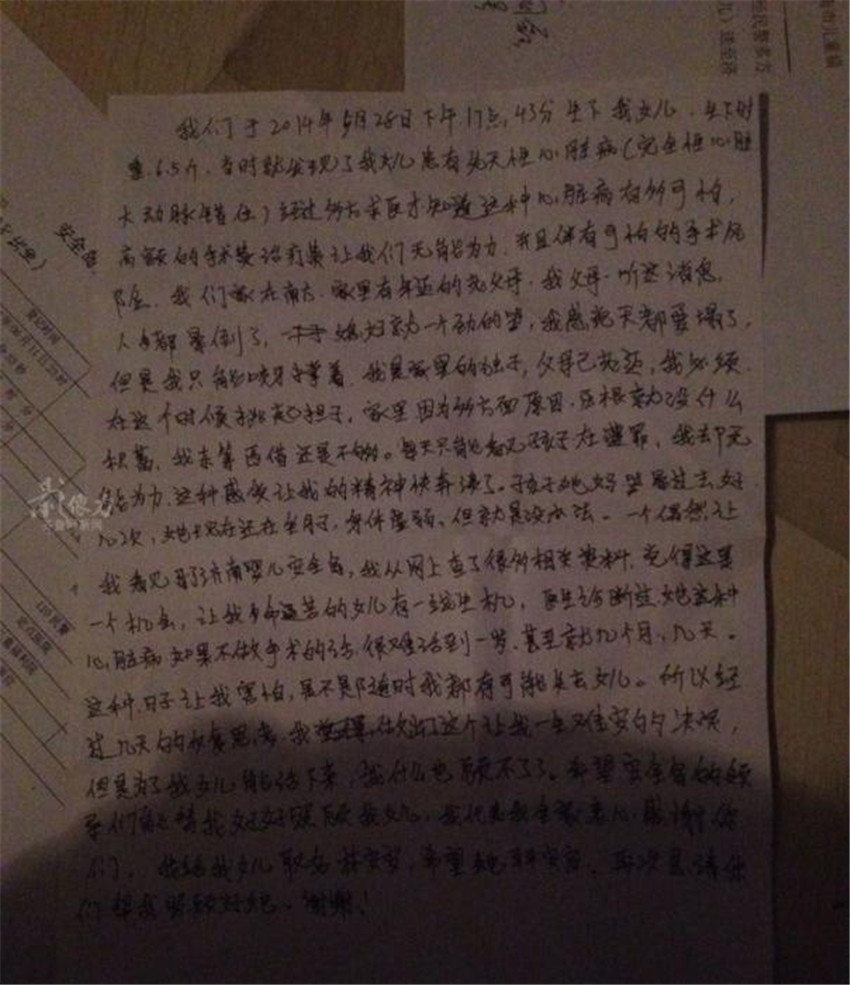 我们于2014年5月28日下午17点,43分生下我女儿.生下时
重.6.5斤.当时就发现了我女儿患有先天性心脏病(完全性心脏
大动脉错位)经过多方求医才知道这种心脏病有多可怕,
高额的手术费治疗费让我们无能为力.并且伴有可怕的手术风
险.我们家在南方.家里有年迈的老父母.我父母一听这消息.
人都晕倒了,她妈就一个劲的哭,我感觉天都要塌了,
但是我只能咬牙撑着.我是家里的独子,父母已老迈,我必须
在这个时候挑起担子,家里因为多方面原因.压根就没什么
积蓄,我东筹西借还是不够。每天只能看见孩子在遭罪,我却无
能为力.这种感觉让我的精神快奔溃了。孩子她妈哭晕过去好
几次,她现在还在坐月,身体虚弱.但就是没办法。一个偶然让
我看见了济南婴儿安全岛,我从网上查了很多相关资料.觉得这里
一个机会,让我多命运苦的女儿有一线生机,医生诊断过她这种
心脏病如果不做手术的话.很难活到一岁.甚至就几个月,几天。
这种日子让我害怕,是不是随时我都有可能失去女儿。所以经
过几天的反复思考.我做出了这个让我一生难住安的决误,
但是为了我女儿能活下来,我什么也顾不了了。希望安全岛的领
导们能替我好好照顾我女儿,我代表我全家衷心感谢你
们,我给我女儿取名林安安,希望她平安安,再次恳请你
们帮我照顾好她。谢谢!
影像力
齐鲁网新闻
安全岛
登记时间